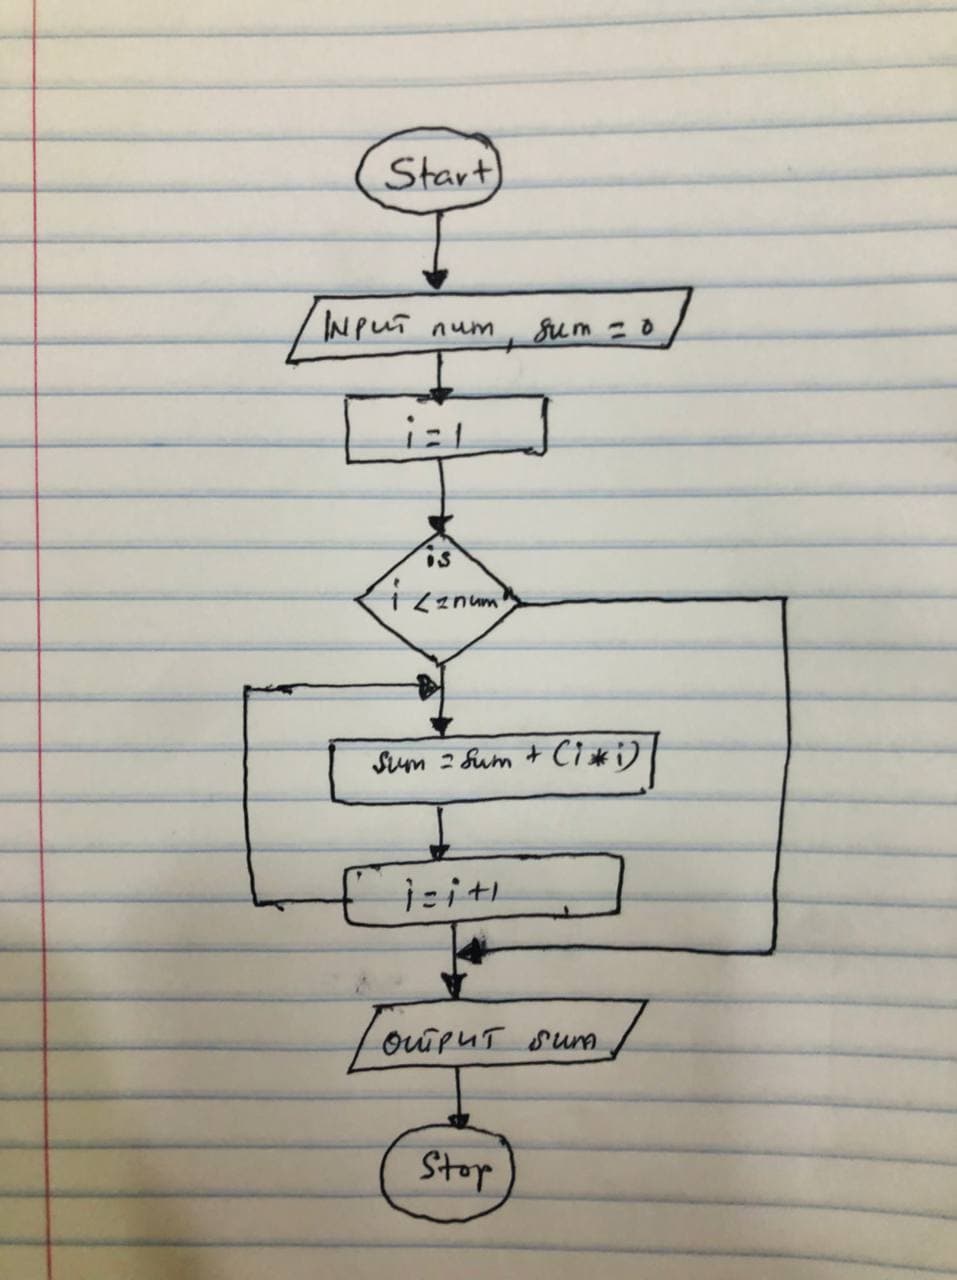 Start
INPUT num, sum = 0
i = 1
is
i <= num
sum = sum + (i * i)
i = i + 1
OUTPUT sum
Stop